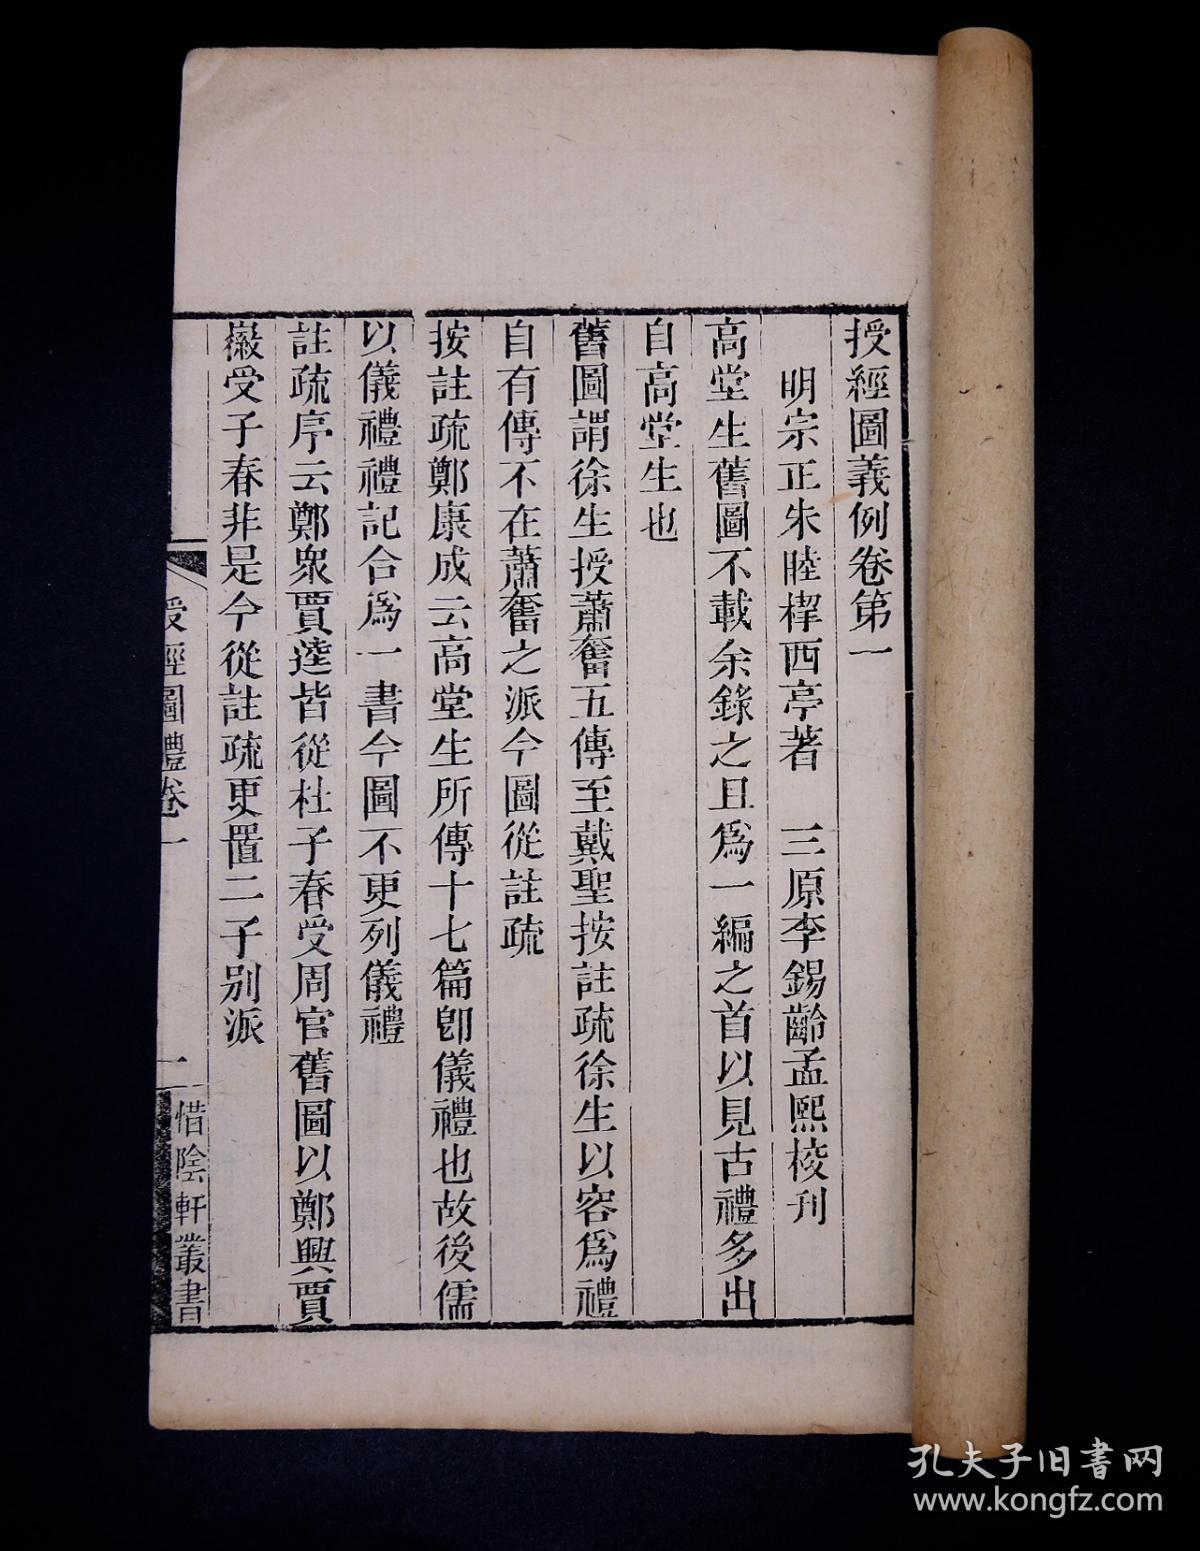 授經圖義例卷第一
明宗正朱睦㮮西亭著　三原李錫齡孟熙校刊
高堂生舊圖不載余錄之且爲一編之首以見古禮多出
自高堂生也
舊圖謂徐生授蕭奮五傳至戴聖按註疏徐生以容爲禮
自有傳不在蕭奮之派今圖從註疏
按註疏鄭康成云高堂生所傳十七篇卽儀禮也故後儒
以儀禮禮記合爲一書今圖不更列儀禮
註疏序云鄭衆賈逵皆從杜子春受周官舊圖以鄭興賈
徽受子春非是今從註疏更置二子別派
授經圖禮卷一
一
惜陰軒叢書
孔夫子旧书网
www.kongfz.com